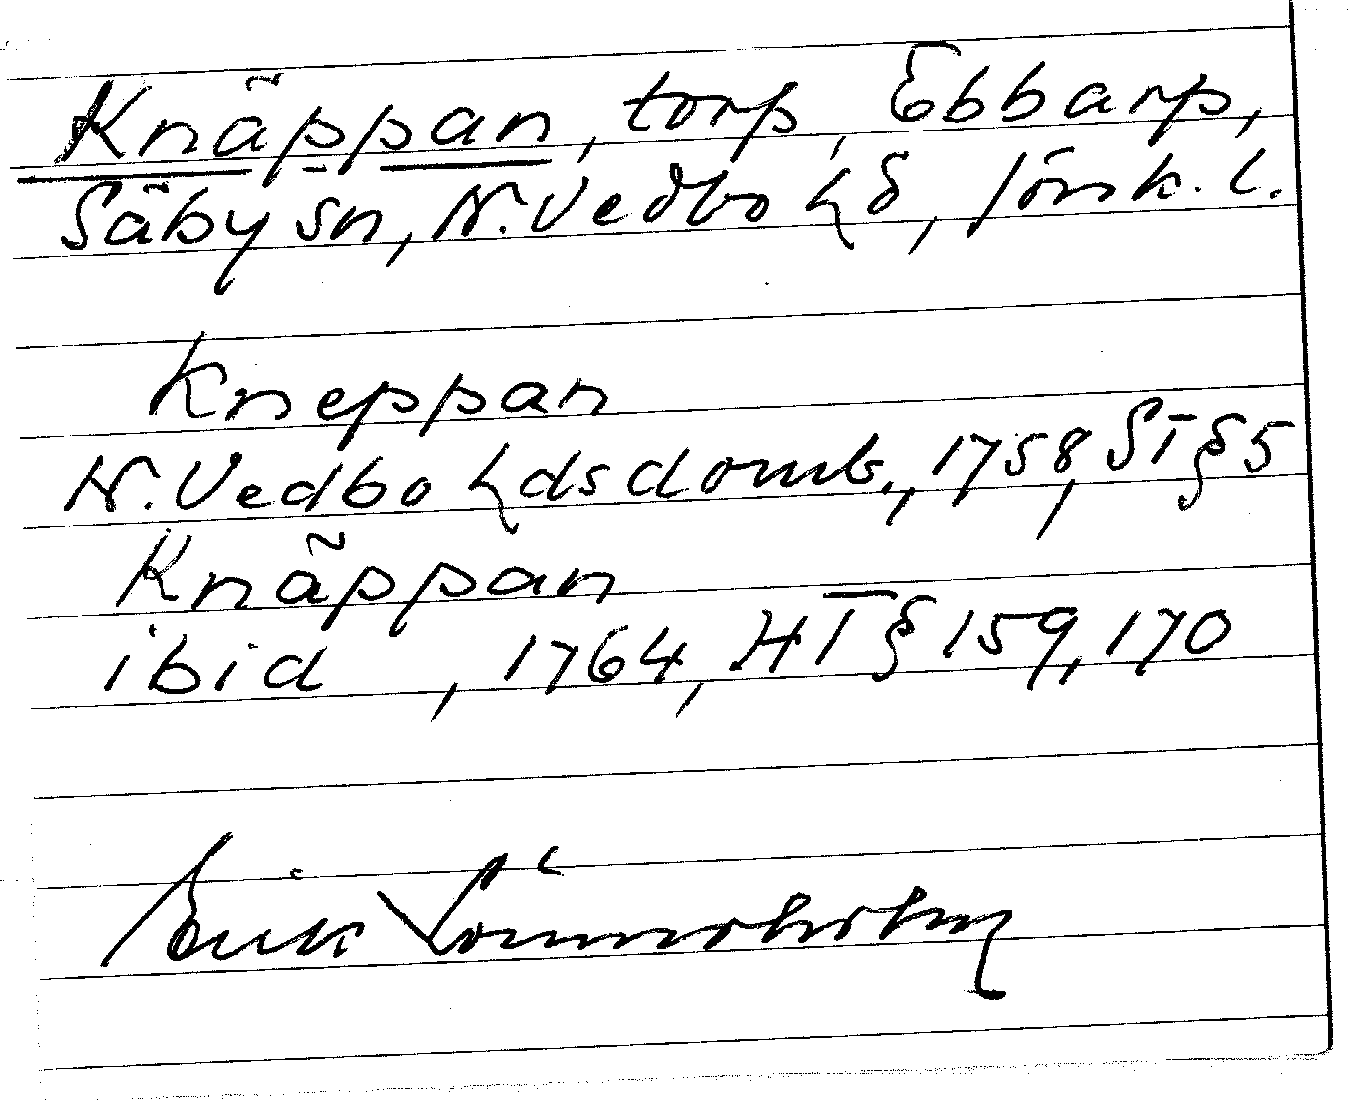 Knäppan, torp, Ebbarp,
Säby sn, N. Vedbo hd, Jönk. l.
Kneppan
N. Vedbo hdsdomb., 1758, ST § 5
Knäppan
ibid, 1764, HT § 159, 170
Erik